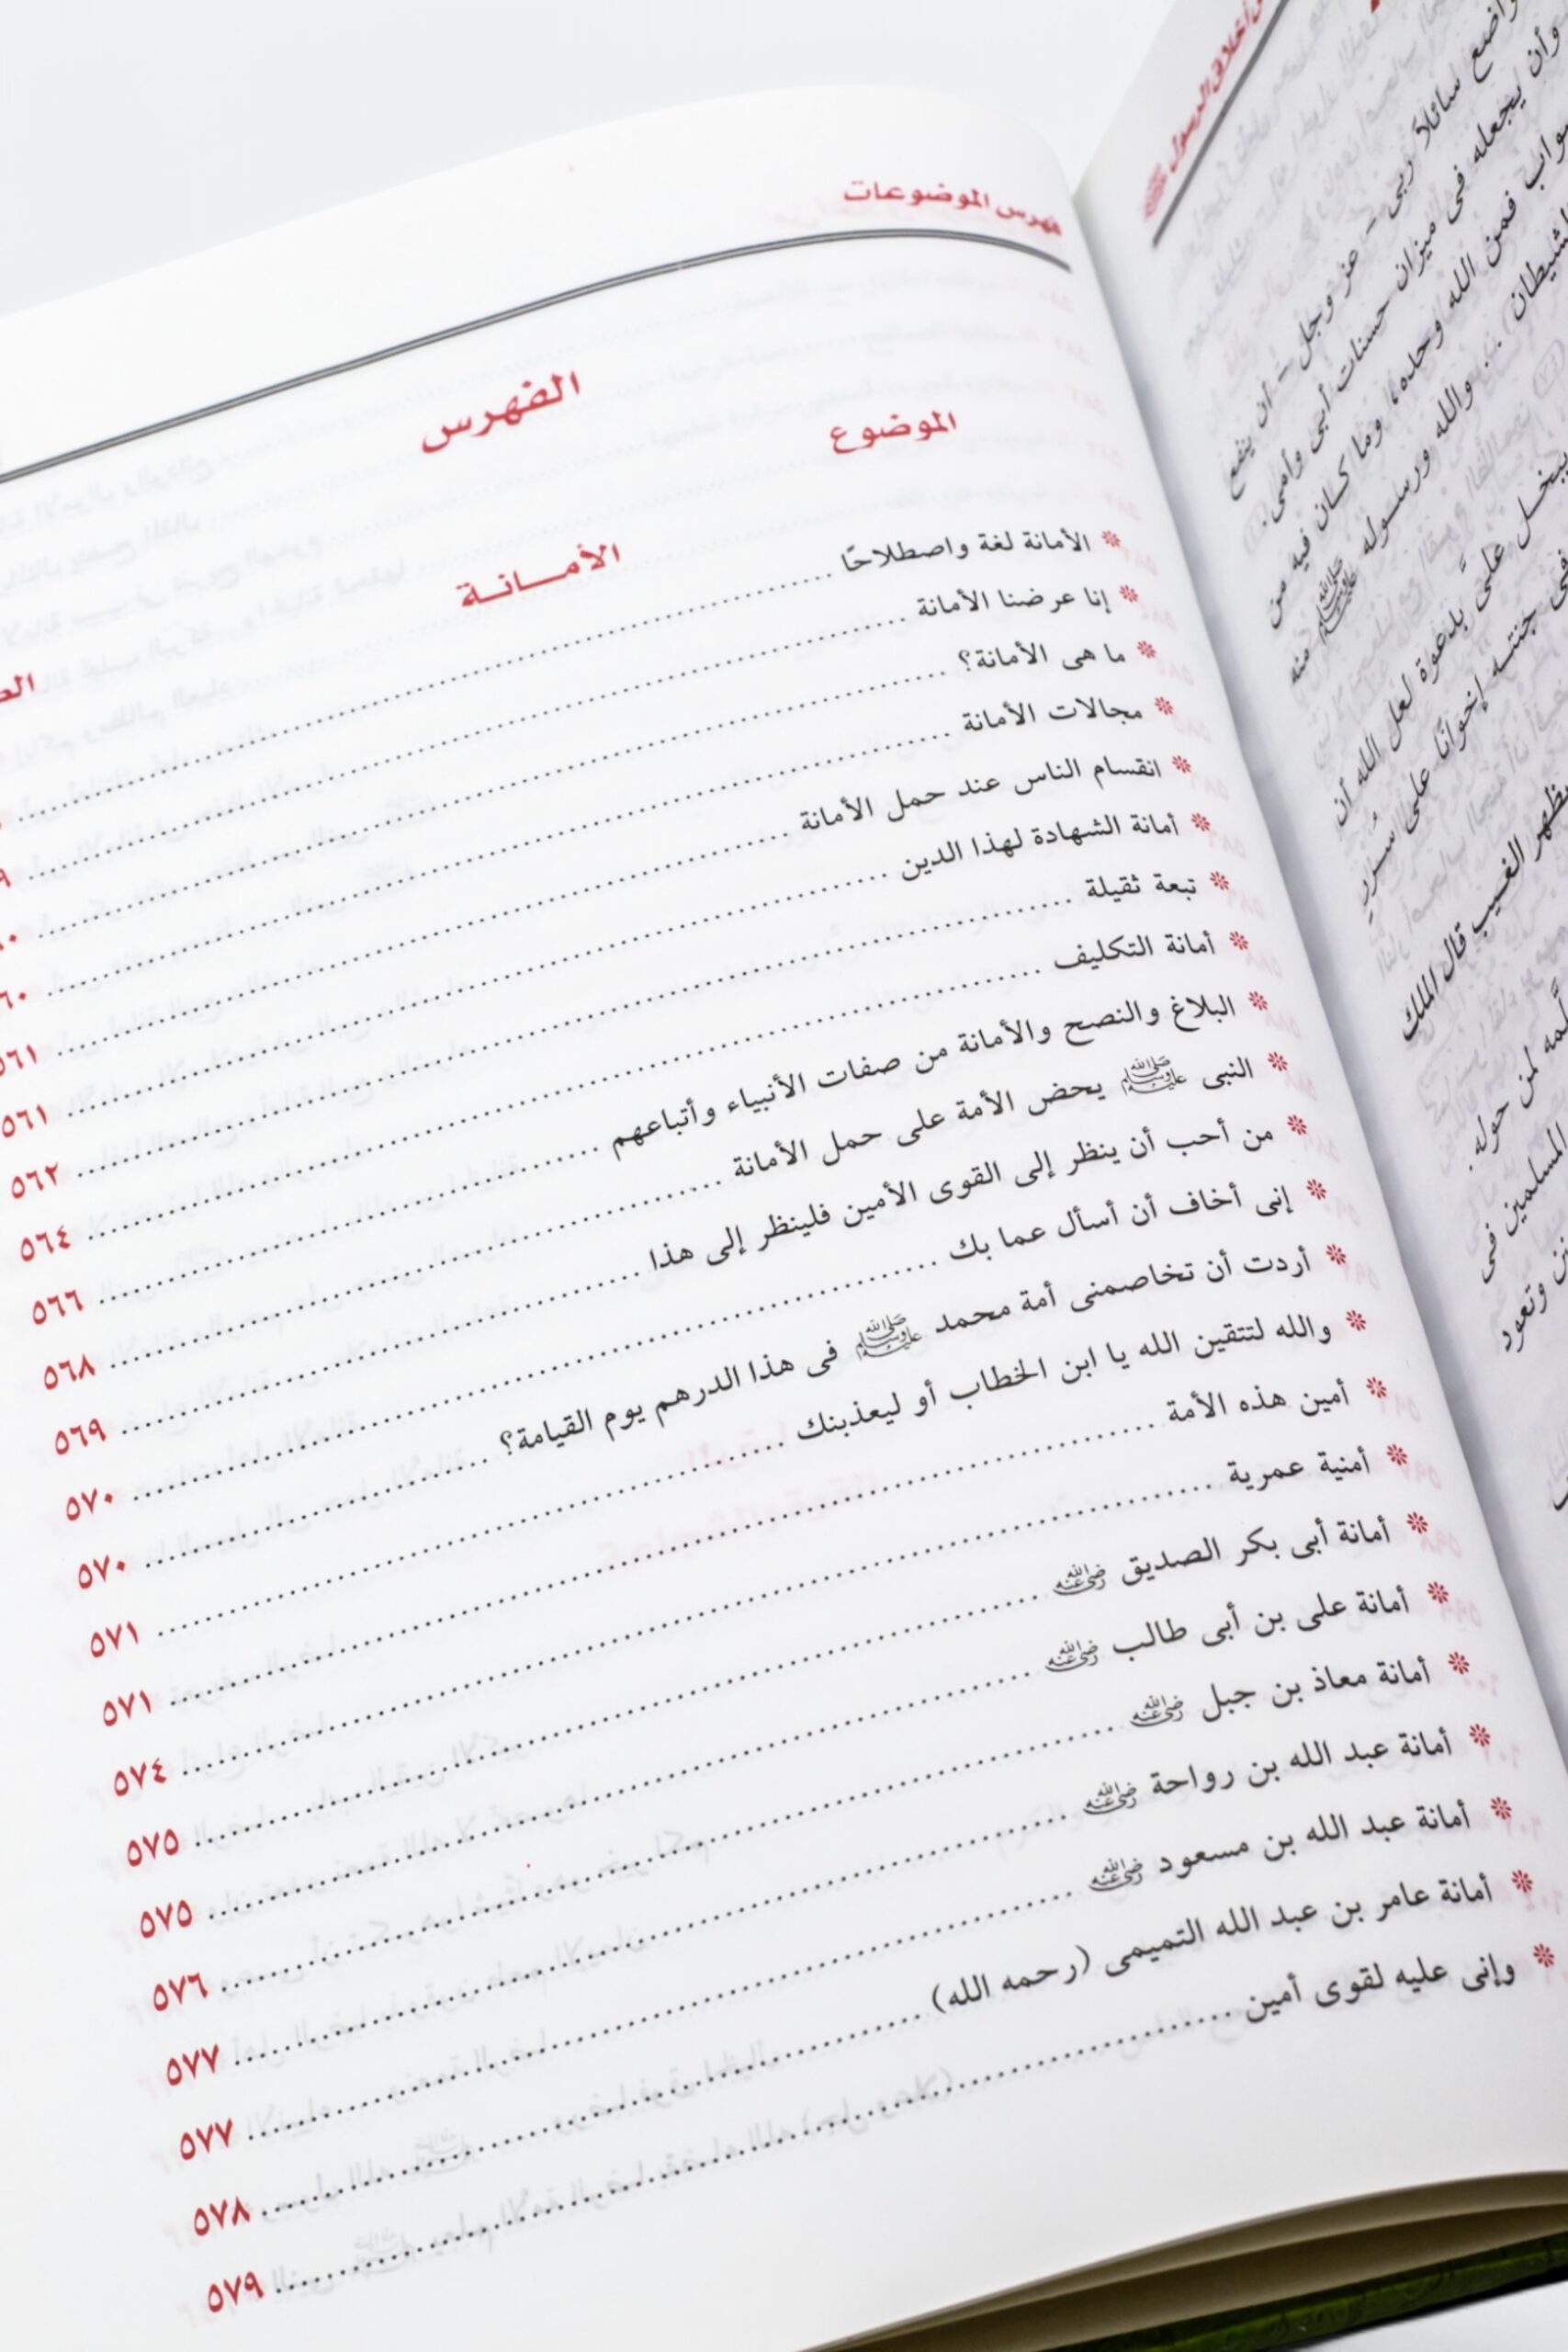 أخلاق الرسول ﷺ
سائلاً ربى - عز وجل - أن ينفع
وأن يجعله فى ميزان حسنات أبى وأمى.
فمن الله وحده، وما كان فيه من
والله ورسوله ﷺ منه
يبخل علىَّ بدعوة لعل الله أن
فى جنته إخوانًا على سرر
الغيب قال الملك
لمن حوله.
المسلمين فى
وتعود
فهرس الموضوعات
الفهرس
الموضوع
الأمـانـة
* الأمانة لغة واصطلاحًا
* إنا عرضنا الأمانة
* ما هى الأمانة؟
* مجالات الأمانة ٦٠
* انقسام الناس عند حمل الأمانة ٥٦١
* أمانة الشهادة لهذا الدين ٥٦١
* تبعة ثقيلة ٥٦٢
* أمانة التكليف ٥٦٤
* البلاغ والنصح والأمانة من صفات الأنبياء وأتباعهم ٥٦٦
* النبى ﷺ يحض الأمة على حمل الأمانة ٥٦٨
* من أحب أن ينظر إلى القوى الأمين فلينظر إلى هذا ٥٦٩
* إنى أخاف أن أسأل عما بك ٥٧٠
* أردت أن تخاصمنى أمة محمد ﷺ فى هذا الدرهم يوم القيامة؟ ٥٧٠
* والله لتتقين الله يا ابن الخطاب أو ليعذبنك ٥٧١
* أمين هذه الأمة ٥٧١
* أمنية عمرية ٥٧٤
* أمانة أبى بكر الصديق رضي الله عنه ٥٧٥
* أمانة على بن أبى طالب رضي الله عنه ٥٧٥
* أمانة معاذ بن جبل رضي الله عنه ٥٧٦
* أمانة عبد الله بن رواحة رضي الله عنه ٥٧٧
* أمانة عبد الله بن مسعود رضي الله عنه ٥٧٧
* أمانة عامر بن عبد الله التميمى (رحمه الله) ٥٧٨
* وإنى عليه لقوى أمين ٥٧٩